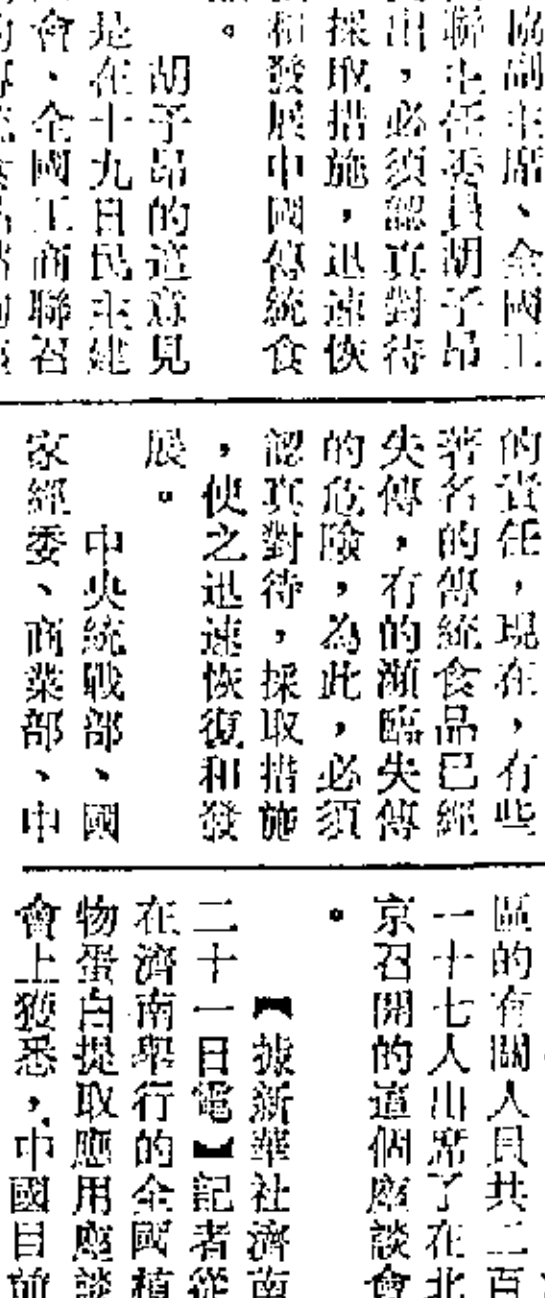 協副主席、全國工
聯主任委員胡子昂
出，必須認真對待
採取措施，迅速恢
和發展中國傳統食
。
胡子昂的這意見
是在十九日民主建
會、全國工商聯召
的責任，現在，有些
著名的傳統食品已經
失傳，有的瀕臨失傳
的危險，為此，必須
認真對待，採取措施
，使之迅速恢復和發
展。
中央統戰部、國
家經委、商業部、中
區的有關人員共二百
一十七人出席了在北
京召開的這個座談會
。
【據新華社濟南
二十一日電】記者從
在濟南舉行的全國植
物蛋白提取應用座談
會上獲悉，中國目前